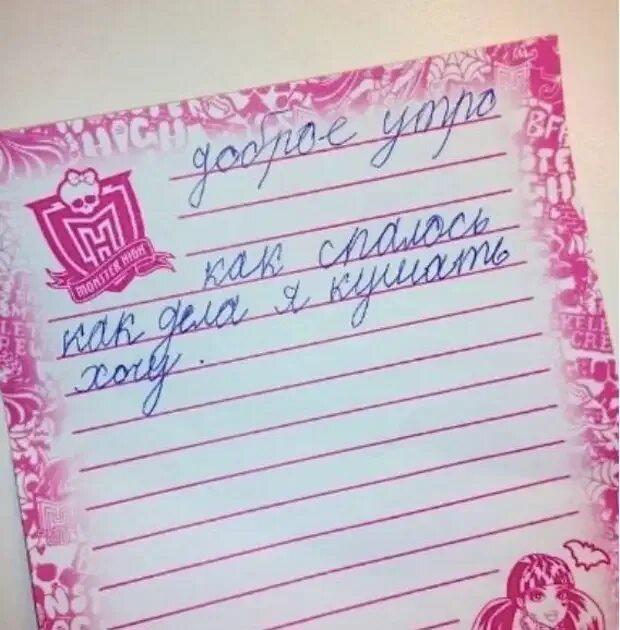 HIGH
доброе утро
MONSTER HIGH
как спалось
как дела я кушать
хочу.
BFF